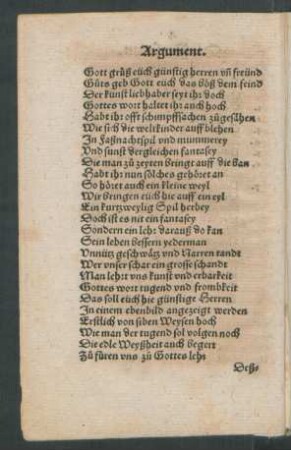 Argument.
Gott grüß eüch günstig herren vñ freünd
Güts geb Gott euch das böß dem feind
Der kunst liebhaber seyt ihr doch
Gottes wort haltet ihr auch hoch
Habt ihr offt schimpffsachen zügesähen
Wie sich die weltkinder auff blehen
In Faßnachtspil vnd mummerey
Vnd sunst dergleichen fantasey
Die man zü zeyten bringt auff die ban
Habt ihr nun solches gehöret an
So höret auch ein kleine weyl
Wir bringen euch hie auff ein eyl
Ein kurtzweylig Spil herbey
Doch ist es nit ein fantasey
Sondern ein lehr darauß do kan
Sein leben bessern yederman
Vnnütz geschwätz vnd Narren tandt
Wer vnser schar ein grosse schandt
Man lehrt vns kunst vnd erbarkeit
Gottes wort tugend vnd frombkeit
Das soll eüch hie günstige Herren
In einem ebenbild angezeigt werden
Erstlich von siben Weysen hoch
Wie man der tugend sol volgen noch
Die edle Weyßheit auch begert
Zü füren vns zü Gottes lehr
Deß-